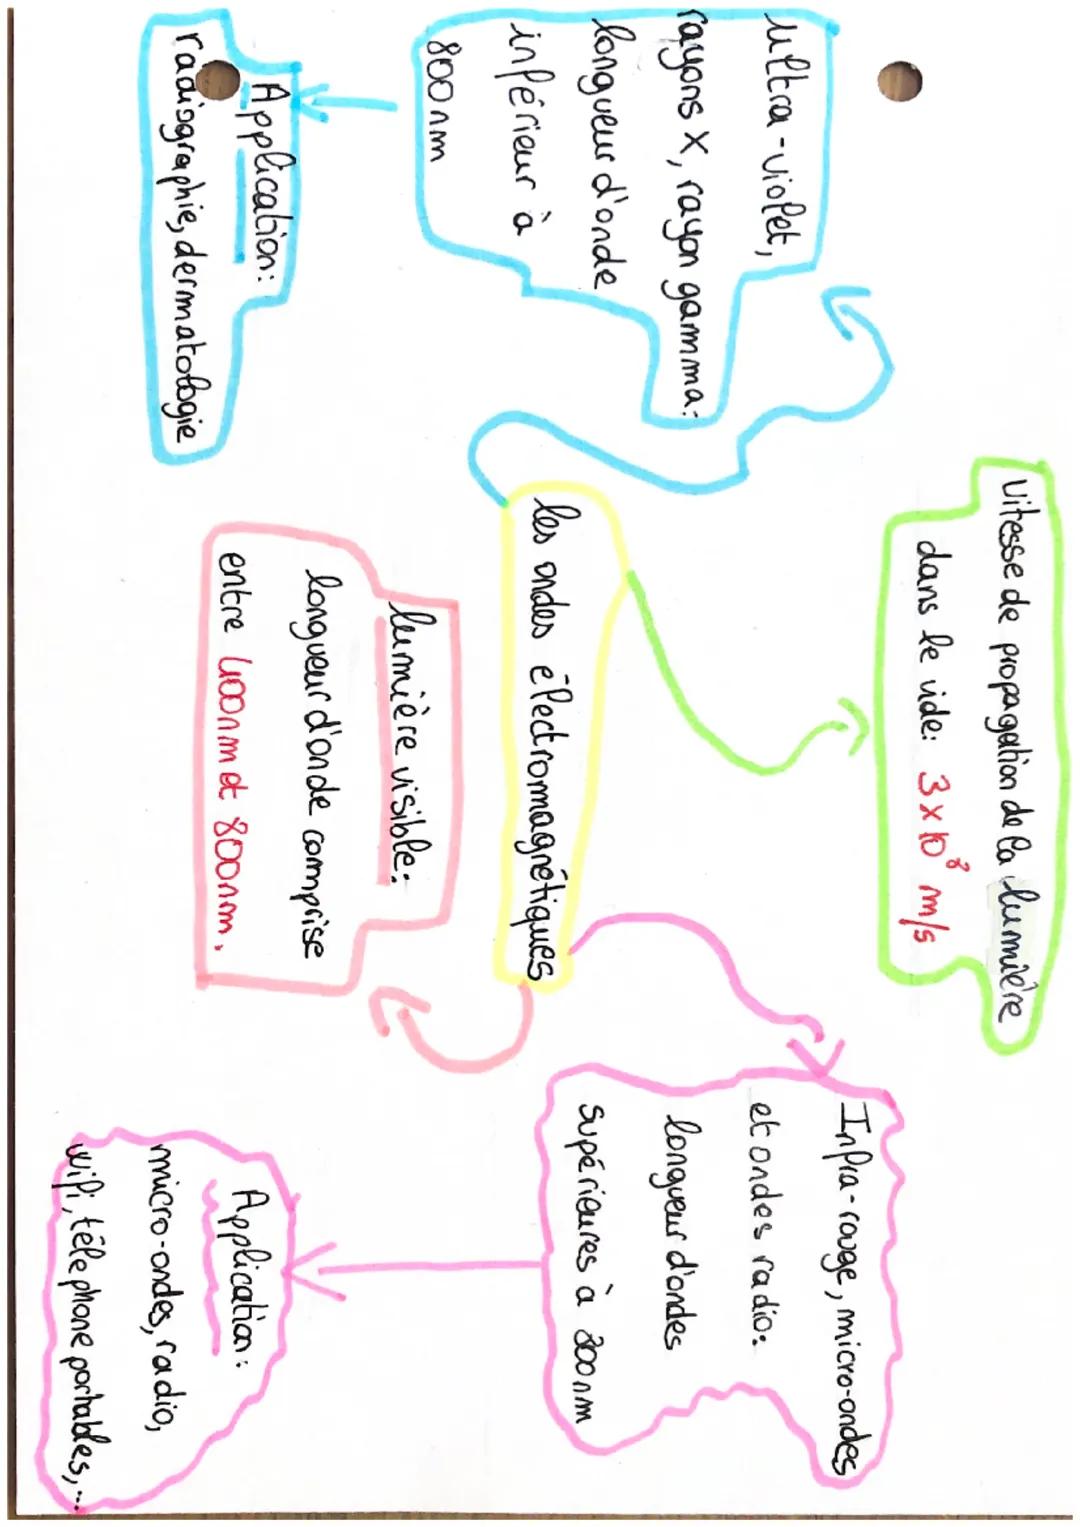 Vitesse de propagation de la lumière
dans le vide: 3 x 10⁸ m/s
Ultra-violet,
rayons X, rayon gamma:
longueur d'onde
inférieur à
800nm
Application:
radiographie, dermatologie
les ondes électromagnétiques
lumière visible:
longueur d'onde comprise
entre 400nm et 800nm.
Infra-rouge, micro-ondes
et ondes radio:
longueur d'ondes
supérieures à 800nm
Application:
micro-ondes, radio,
wifi, téléphone portables,...